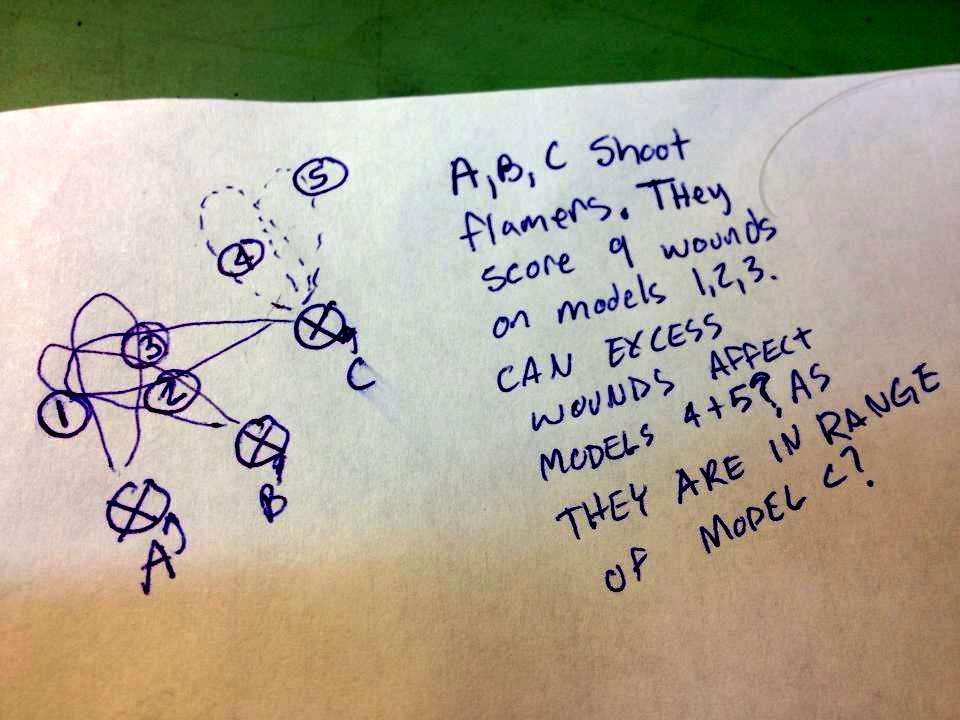 A, B, C Shoot
flamers. THey
score 9 wounds
on models 1,2,3.
CAN EXCESS
WOUNDS AFFECT
MODELS 4+5?, AS
THEY ARE IN RANGE
OF MODEL C?
5
4
3
C
2
1
B
A